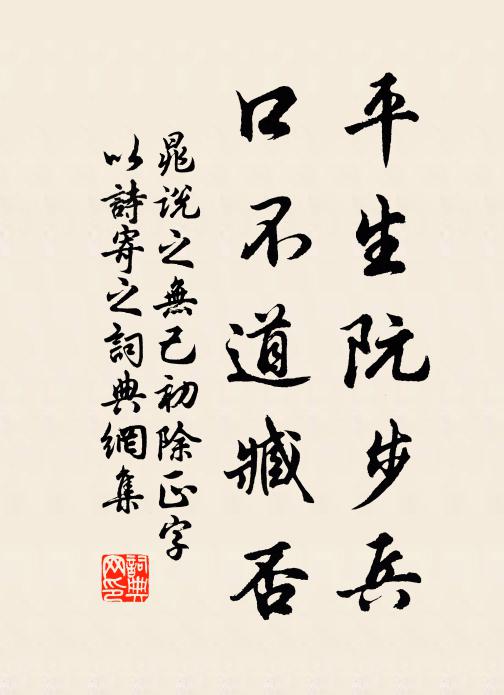 平生阮步兵
口不道臧否
晁說之無己初除正字
以詩寄之詞典網集
詞典
网印